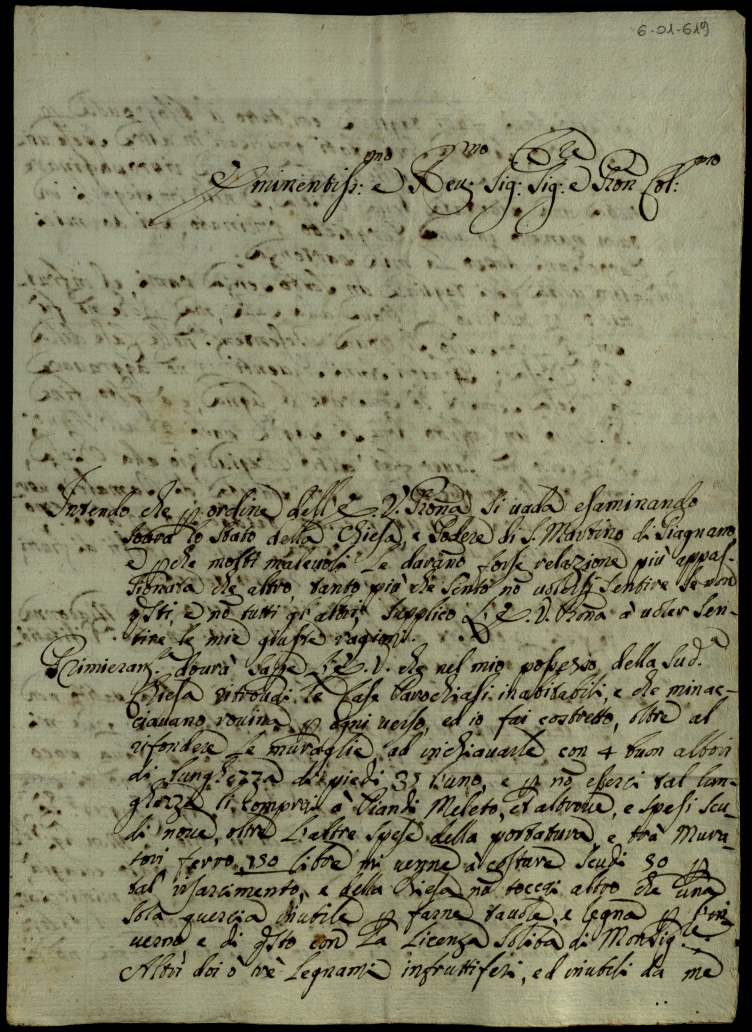 6-01-619
Eminentiss:mo e Reu:mo Sig: Sig: e Pron Col:mo
Intendo che p ordine dell'E. V. Rma si uada esaminando
sopra lo stato della Chiesa, e Podere di S. Martino di Giagnano,
e pche molti maleuoli Le darano forse relazione più appas-
sionata che altro, tanto più che sento nō sentire se non
qsti, e nō tutti gl'altri, supplico L'E. V. Rma à uoler sen-
tire le mie giuste ragioni.
Primieram.te dourà sapre L'E. V. che nel mio possesso della Sud.a
Chiesa ritrouai le Case Parochiali inhabitabili, e che minac-
ciauano rouina p ogni uerso, ed io fui costretto, oltre al
rifondere le muraglie, ad inchiauarle con 4 buon albori
di lunghezza di piedi 35 l'uno, e p nō esserci tal lun-
ghezza li comprai à Meleto, et altroue, e spesi scu-
di noue, oltre l'altre spese della portatura, e trà Mura-
tori ferro 130 libre mi uenne à costare scudi 50 p
tal risarcimento, e della Chiesa nō toccai altro che una
sola quercia inutile p farne tauole, e legna p l'in-
uerno e di qsto con La Licenza solita di Monsig.re
Altri doi ò trè Legnami infruttiferi, ed inutili da me